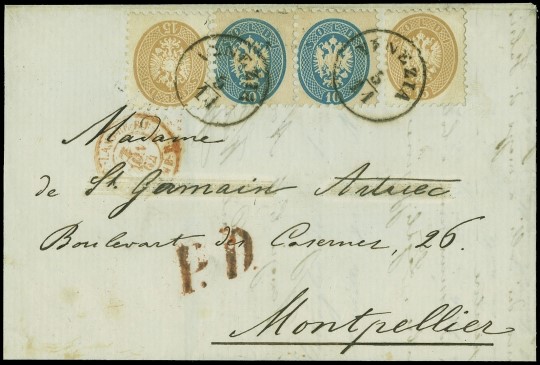 15 10 10
VENEZIA
VENEZIA
Madame
de St. Germain
Boulevart des Casernes, 26.
P.D
Montpellier